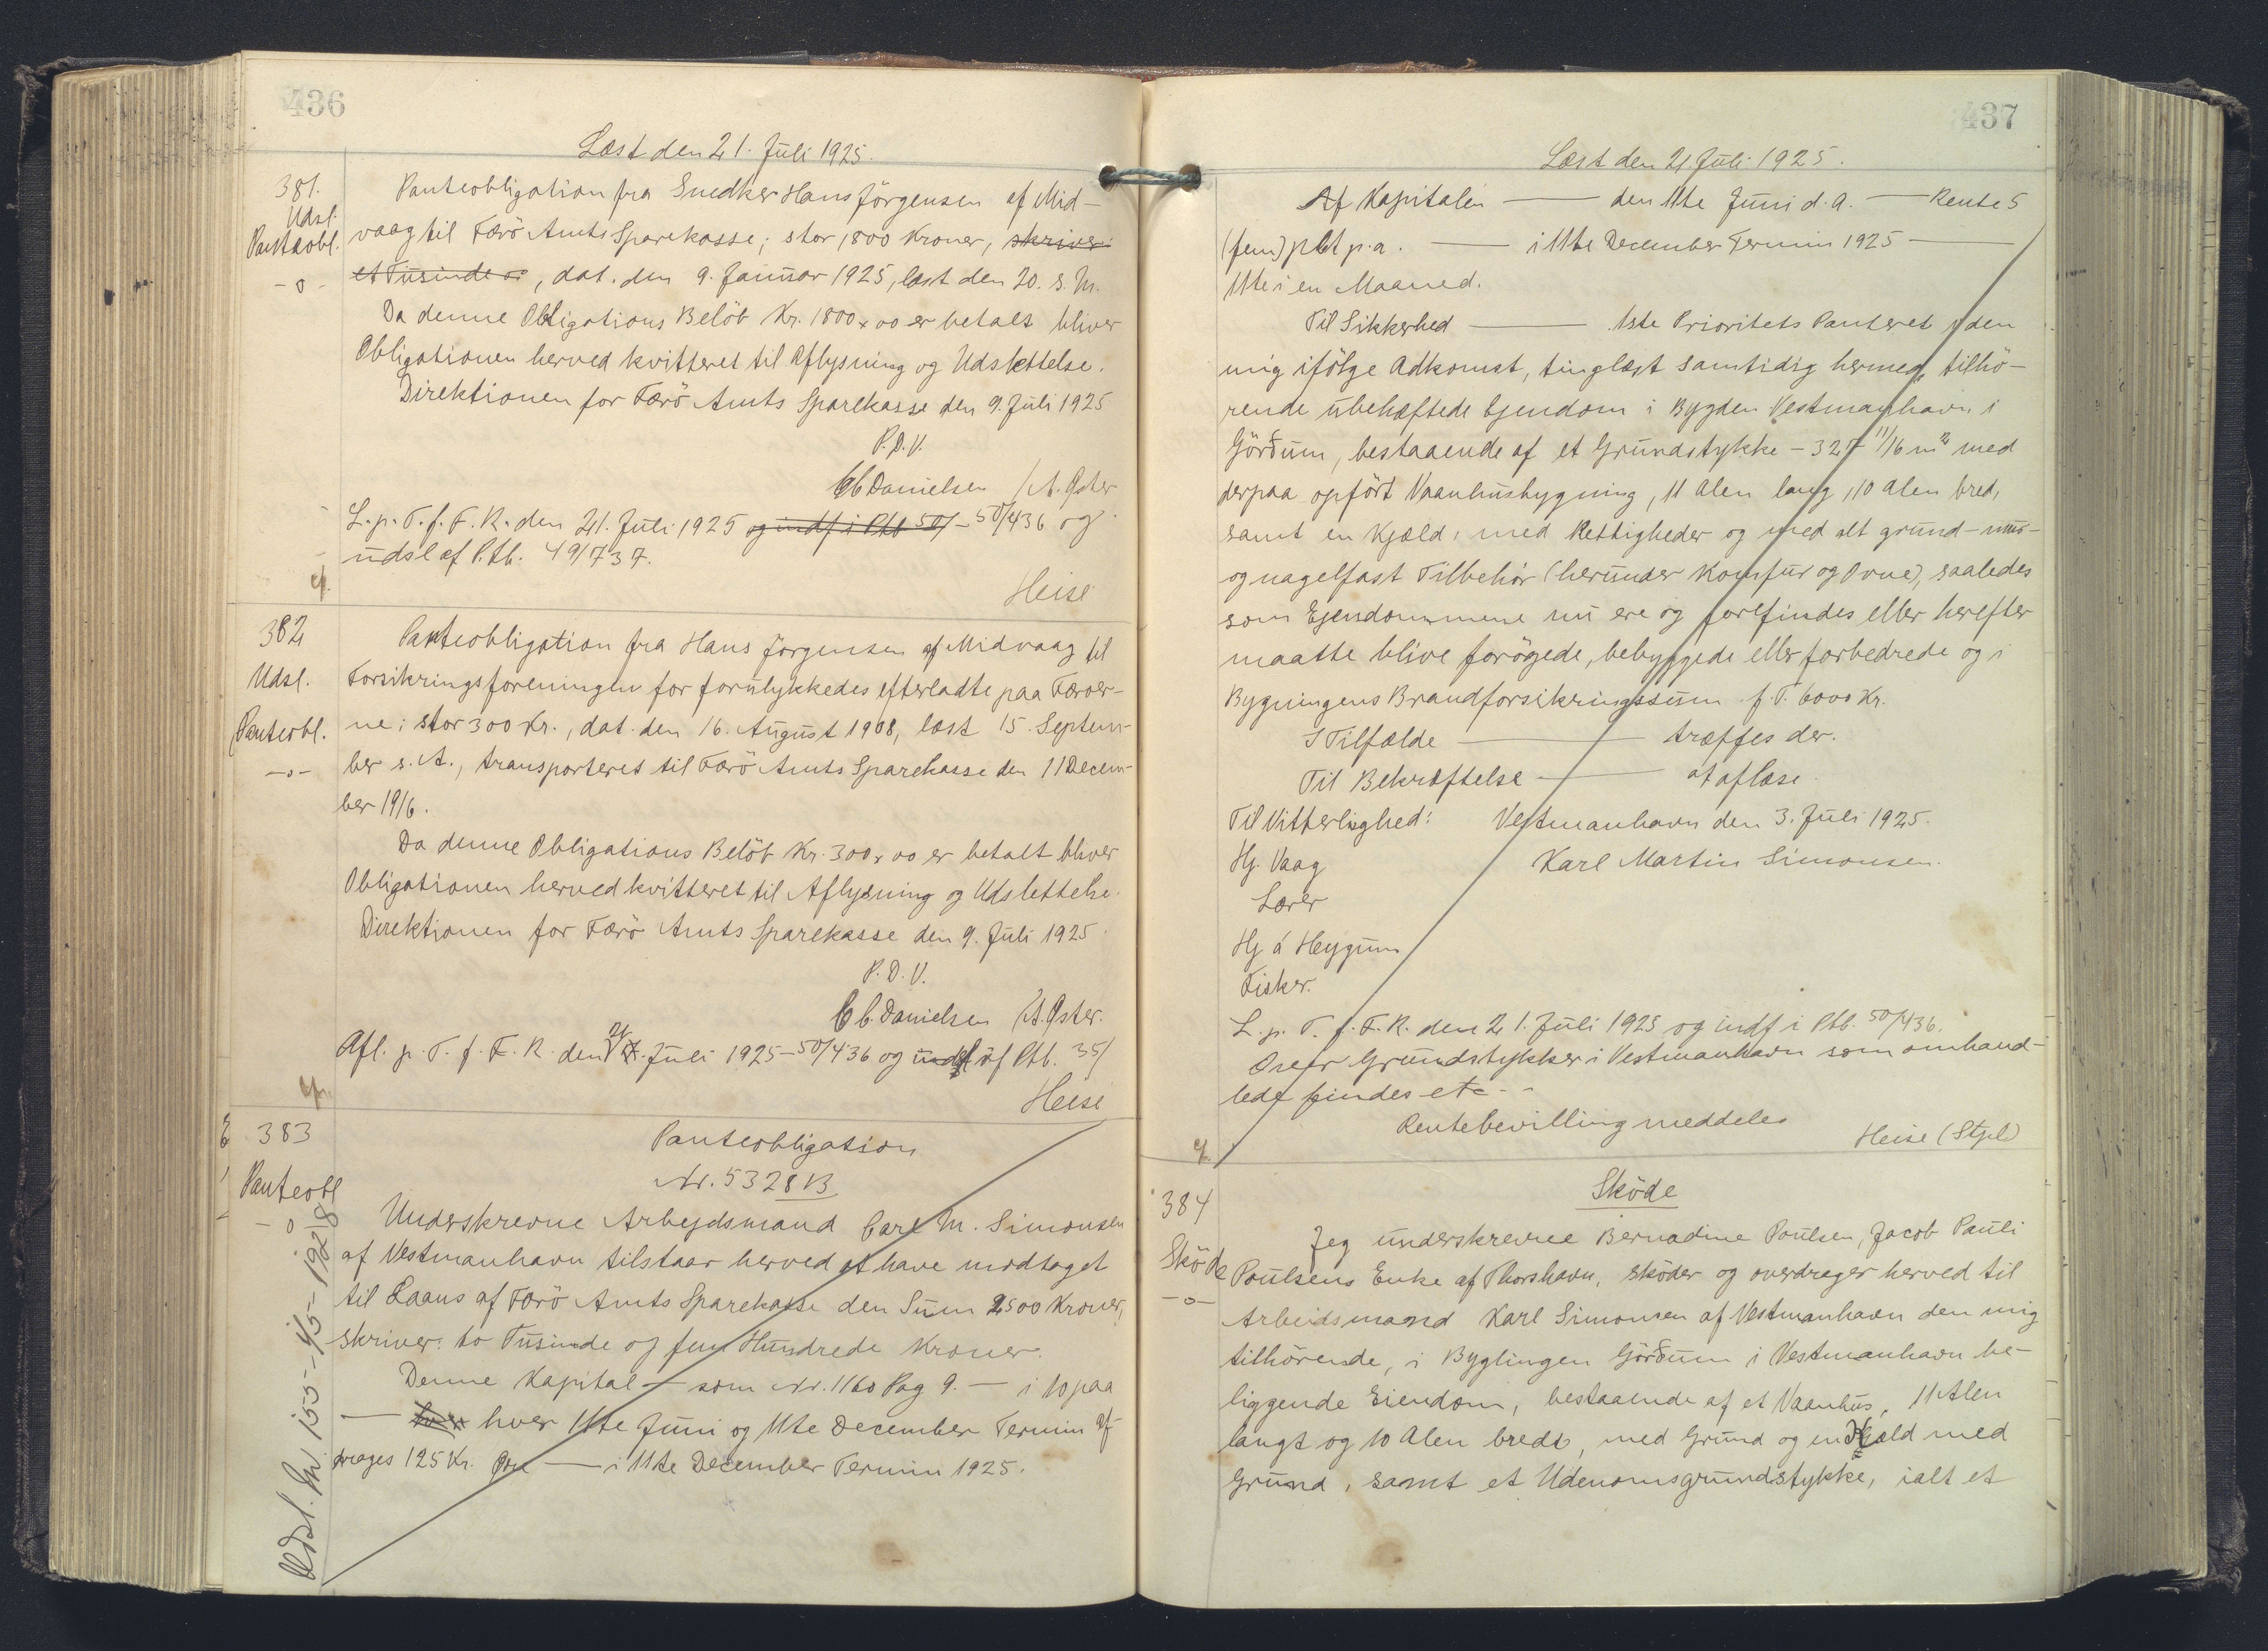 436
Læst den 21. Juli 1925.
381.
Udsl.
Panteobl.
-o-
Panteobligation fra Snedker Hans Jörgensen af Mid-
vaag til Færö Amts Sparekasse, stor 1800 Kroner, skriver
et Tusinde o:, dat. den 9. Januar 1925, læst den 20. s. M.
Da denne Obligations Belöb Kr. 1800 x 00 er betalt bliver
Obligationen herved kvitteret til Aflysning og Udslettelse.
Direktionen for Færö Amts Sparekasse den 9. Juli 1925
P.D.V.
C C Danielsen / A. Öster
L. p. T. f. F. R. den 21. Juli 1925 og indf i Ptb 50/ - 50/436 og
udsl af Ptb. 49/737.
Heise
382
Udsl.
Panteobl.
-o-
Panteobligation fra Hans Jörgensen af Midvaag til
Forsikringsforeningen for forulykkedes efterladte paa Færöer-
ne; stor 300 Kr., dat. den 16. August 1908, læst 15. Septem-
ber s. A., transporteret til Færö Amts Sparekasse den 11 Decem-
ber 1916.
Da denne Obligations Belöb Kr. 300 x 00 er betalt bliver
Obligationen herved kvitteret til Aflysning og Udslettelse.
Direktionen for Færö Amts Sparekasse den 9. Juli 1925.
P.D.V.
C C. Danielsen / A. Öster.
Afl. p. T. f. F. R. den 21. Juli 1925 - 50/436 og udsl af Ptb. 35/
Heise
383
Panteobl
-o-
Udsl. 155-45-1928
Panteobligation
Nr. 5328 B
Underskrevne Arbejdsmand Carl M. Simonsen
af Vestmanhavn tilstaar herved at have modtaget
til Laans af Færö Amts Sparekasse den Sum 2500 Kroner,
skriver: to Tusinde og fem Hundrede Kroner.
Denne Kapital — som Nr. 1160 Pag 9. — i 10 paa
— hver 11te Juni og 11te December Termin af-
drages 125 Kr. — i 11te December Termin 1925.
437
Læst den 21. Juli 1925.
Af Kapitalen — den 11te Juni d. A. — Rente 5
(fem) pCt p. a. — i 11te December Termin 1925 —
11te i en Maaned.
Til Sikkerhed — 1ste Prioritets Panteret i den
mig ifölge Adkomst, tinglæst samtidig hermed, tilhö-
rende ubehæftede Ejendom i Bygden Vestmanhavn i
Görðum, bestaaende af et Grundstykke - 327 11/16 m2 med
derpaa opfört Vaanhusbygning, 11 Alen lang, 10 Alen bred,
samt en Kjæld, med Rettigheder og med alt grund- mur-
og nagelfast Tilbehör (herunder Komfur og Ovne), saaledes
som Ejendommene nu ere og forefindes eller herefter
maatte blive forögede, bebyggede eller forbedrede og i
Bygningens Brandforsikringssum f. T. 6000 Kr.
I Tilfælde — træffes der.
Til Bekræftelse — at aflæse.
Til Vitterlighed: Vestmanhavn den 3. Juli 1925.
Hj. Vaag Karl Martin Simonsen.
Lærer
Hj á Heygum
Fisker.
L. p. T. f. F. R. den 21. Juli 1925 og indf i Ptb. 50/436.
Over Grundstykker i Vestmanhavn som omhand-
lede findes etc - -
Rentebevilling meddeles
Heise (Stpl)
384
Sköde
-o-
Sköde
Jeg underskrevne Bernadine Poulsen, Jacob Pauli
Poulsens Enke af Thorshavn, sköder og overdrager herved til
Arbeidsmand Karl Simonsen af Vestmanhavn den mig
tilhörende, i Byglingen Görðum i Vestmanhavn be-
liggende Eiendom, bestaaende af et Vaanhus, 11 Alen
langt og 10 Alen bredt, med Grund og en Kjæld med
Grund, samt et Udenomsgrundstykke, ialt et